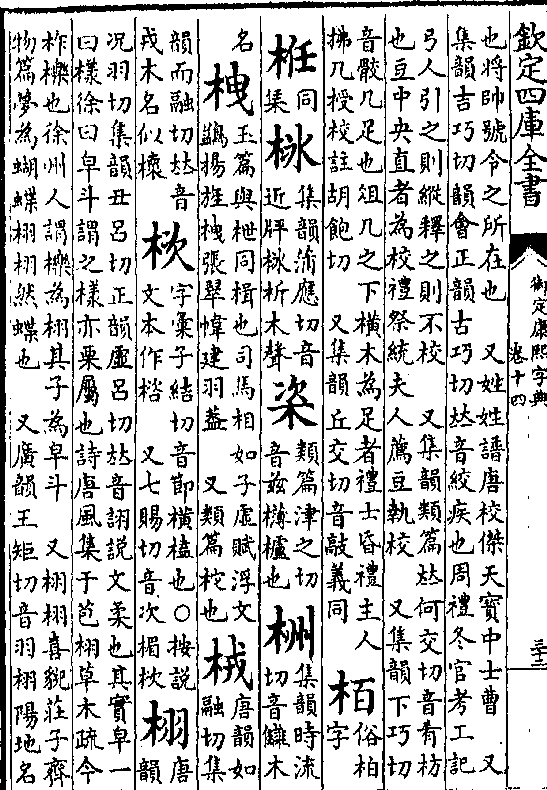 欽定四庫全書
御定康熙字典
卷十四
三十三
也將帥號令之所在也 又姓姓譜唐校傑天寶中士曹 又
集韻吉巧切韻會正韻古巧切𠀤音絞疾也周禮冬官考工記
弓人引之則縱釋之則不校 又集韻類篇𠀤何交切音肴枋
也豆中央直者為校禮祭統夫人薦豆執校 又集韻下巧切
音骹几足也俎几之下橫木為足者禮士昏禮主人
拂几授校註胡飽切 又集韻丘交切音敲義同
栢 俗柏字
栣 同集
集韻蒲應切音近 析木聲
栥 類篇津之切音茲欂櫨也
栦 集韻時流切音讎木
名
栧 玉篇與枻同楫也司馬相如子虛賦浮文
鷁揚旌栧張翠幃建羽蓋 又類篇柁也
㭜 唐韻如融切集
韻而融切𠀤音
戎木名似檍
栨 字彙子結切音節橫榼也○按說
文本作楶 又七賜切音次楣栨
栩 唐韻
況羽切集韻丑呂切正韻盧呂切𠀤音詡說文柔也其實皁一
曰樣徐曰皁斗謂之樣亦栗屬也詩唐風集于苞栩草木疏今
柞櫟也徐州人謂櫟為栩其子為皁斗 又栩栩喜貌莊子齊
物篇夢為蝴蝶栩栩然蝶也 又廣韻王矩切音羽栩陽地名